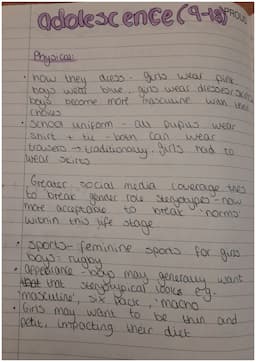 adolescence (9-18)
Physical:
• how they dress - girls wear pink
boys wear blue, girls wear dresses/skirts
boys become more masculine with their
choices
• School uniform - all pupils wear
shirt + tie - both can wear
trousers → traditionally girls had to
wear skirts
Greater social media coverage tries
to break gender role sterotypes - now
more acceptable to break 'norms'
within this life stage
• sports - feminine sports for girls
boys = rugby
• appearane - boys may generally want
that sterotypical looks e.g.
'masculine', six pack, 'macho'
• Girls may want to be thin and
petit, impacting their diet